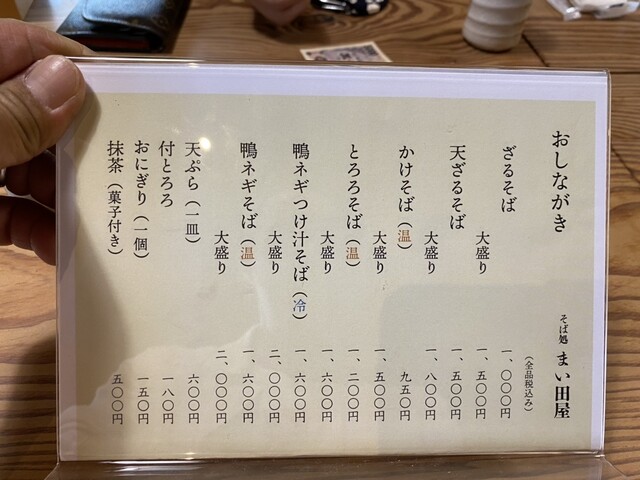 おしながき
そば処 まい田屋
(全品税込み)
ざるそば 一、〇〇〇円
大盛り 一、五〇〇円
天ざるそば 一、五〇〇円
大盛り 一、八〇〇円
かけそば(温) 九五〇円
大盛り 一、五〇〇円
とろろそば(温) 一、二〇〇円
大盛り 一、六〇〇円
鴨ネギつけ汁そば(冷) 一、六〇〇円
大盛り 二、〇〇〇円
鴨ネギそば(温) 一、六〇〇円
大盛り 二、〇〇〇円
天ぷら(一皿) 六〇〇円
付とろろ 一八〇円
おにぎり(一個) 一五〇円
抹茶(菓子付き) 五〇〇円